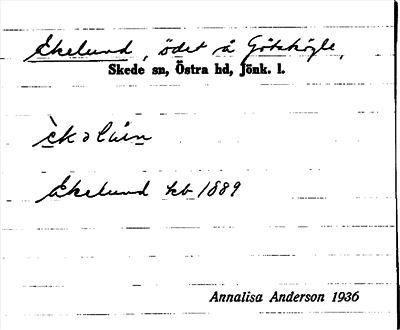 Ekelund, ödet å Götshögle,
Skede sn, Östra hd, Jönk. l.
Ekelund kb 1889
Annalisa Anderson 1936